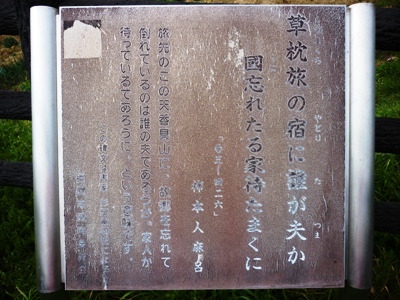 草枕旅の宿に誰が夫か
やどり た つま
國忘れたる家待たまくに
「巻三―四二六」
柿本人麻呂
旅先のこの天香具山に、故郷を忘れて
倒れているのは誰の夫であろうか。家人が
待っているであろうに、という意味です。